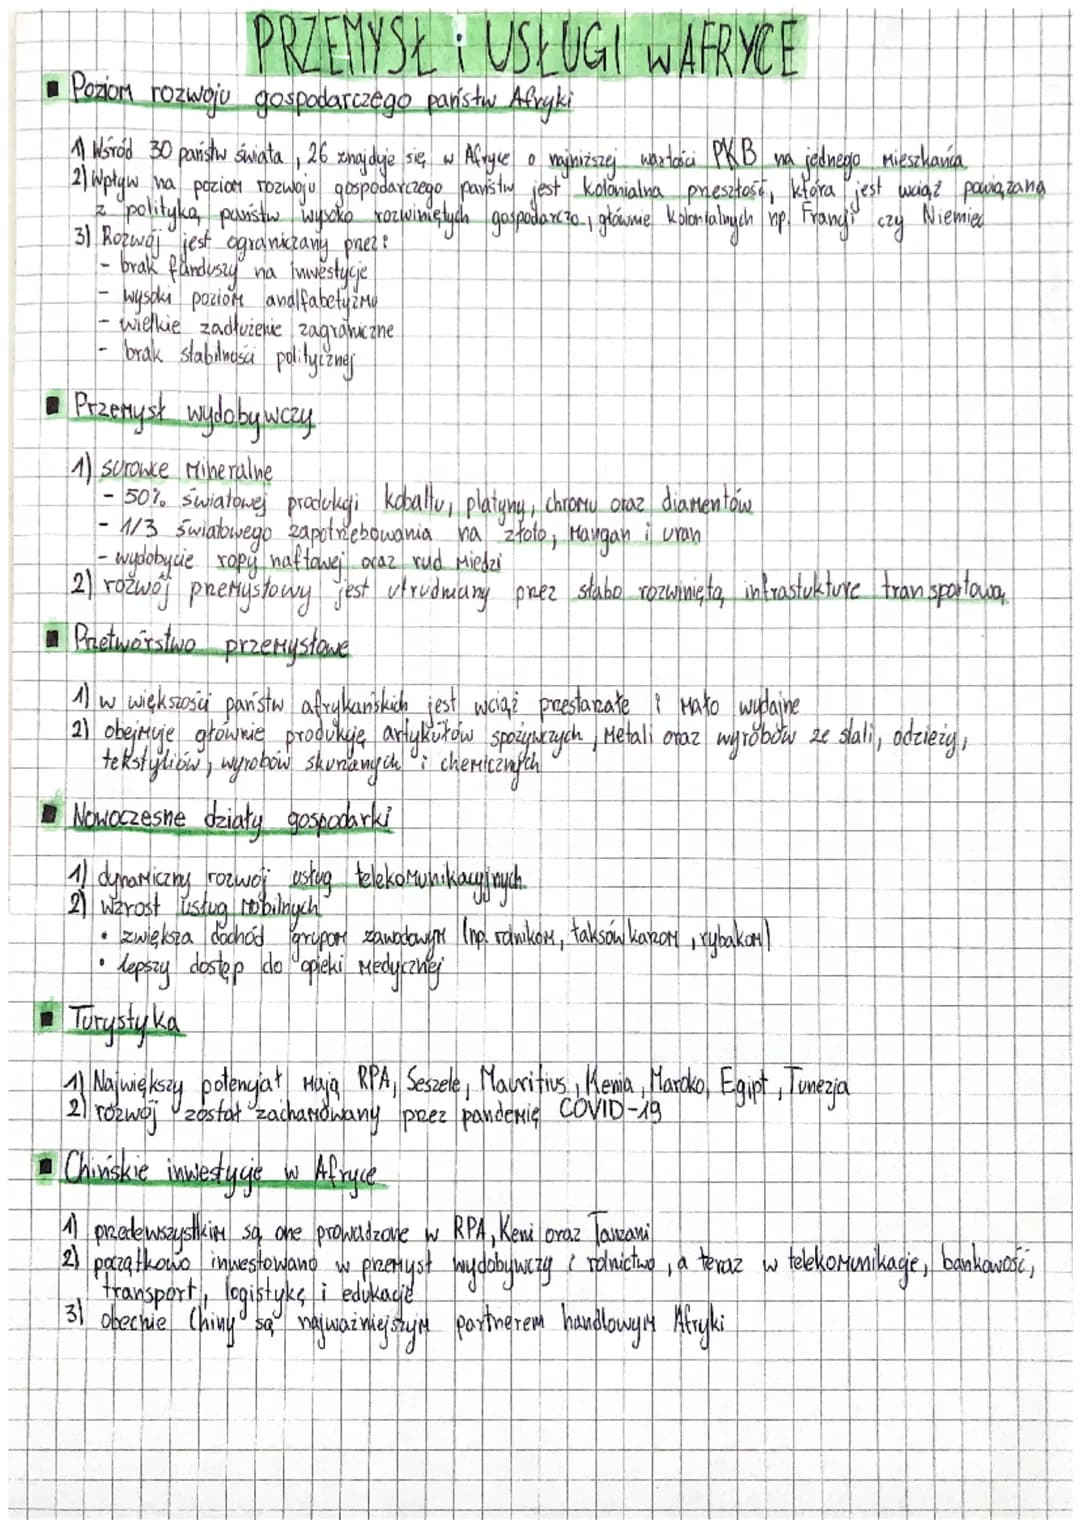 PRZEMYSŁ i USŁUGI W AFRYCE
Poziom rozwoju gospodarczego państw Afryki
1) Wśród 30 państw świata, 26 znajduje się w Afryce o najniższej wartości PKB na jednego mieszkańca
2) Wpływ na poziom rozwoju gospodarczego państw jest kolonialna przeszłość, która jest wciąż powiązana
z polityką państw wysoko rozwiniętych gospodarczo, głównie kolonialnych np. Francji czy Niemiec
3) Rozwój jest ograniczany przez:
- brak funduszy na inwestycje
- wysoki poziom analfabetyzmu
- wielkie zadłużenie zagraniczne
- brak stabilności politycznej
Przemysł wydobywczy
1) surowce mineralne
- 50% światowej produkcji kobaltu, platyny, chromu oraz diamentów
- 1/3 światowego zapotrzebowania na złoto, mangan i uran
- wydobycie ropy naftowej oraz rud miedzi
2) rozwój przemysłowy jest utrudniany przez słabo rozwiniętą infrastukturę transportową
Przetwórstwo przemysłowe
1) w większości państw afrykańskich jest wciąż przestarzałe i mało wydajne
2) obejmuje głównie produkcję artykułów spożywczych, metali oraz wyrobów ze stali, odzieży,
tekstyliów, wyrobów skórzanych i chemicznych
Nowoczesne działy gospodarki
1) dynamiczny rozwój usług telekomunikacyjnych
2) wzrost usług mobilnych
• zwiększa dochód grupom zawodowym (np. rolnikom, taksówkarzom, rybakom)
• lepszy dostęp do opieki medycznej
Turystyka
1) Największy potencjał mają RPA, Seszele, Mauritius, Kenia, Maroko, Egipt, Tunezja
2) rozwój został zachamowany przez pandemię COVID-19
Chińskie inwestycje w Afryce
1) przedewszystkim są one prowadzone w RPA, Keni oraz Tanzani
2) początkowo inwestowano w przemysł wydobywczy i rolnictwo, a teraz w telekomunikację, bankowość,
transport, logistykę i edukację
3) obecnie Chiny są najważniejszym partnerem handlowym Afryki